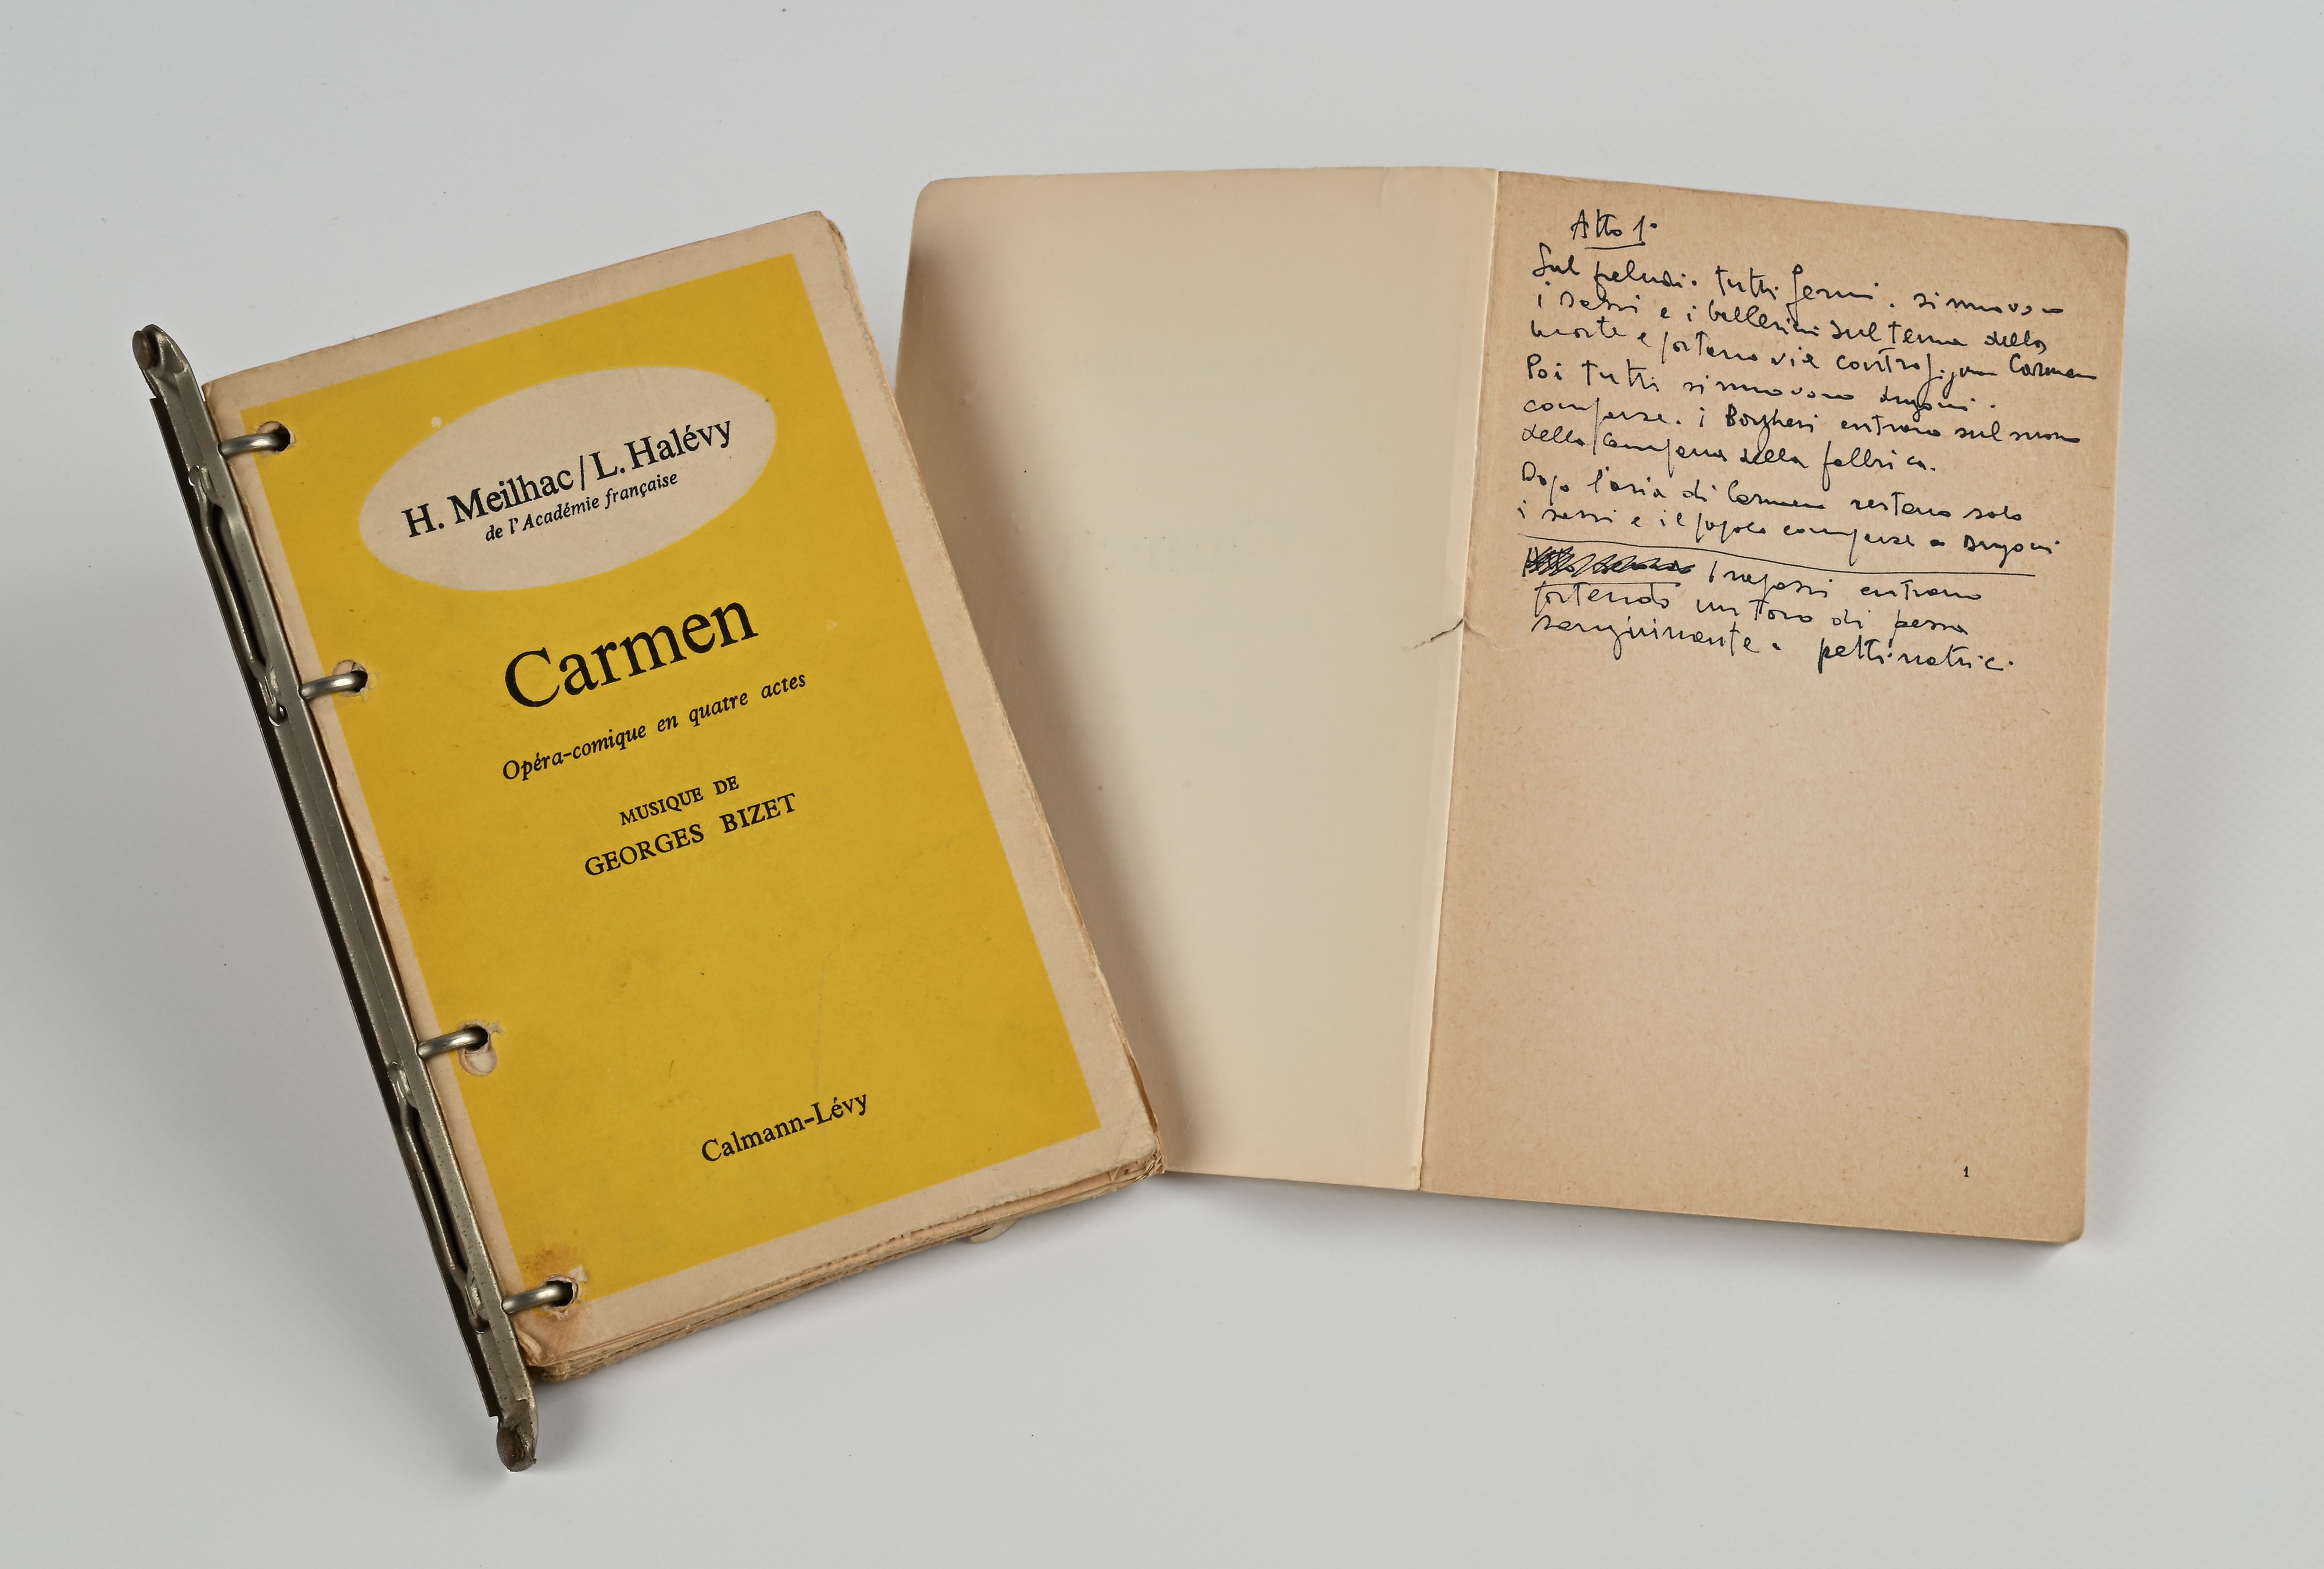 H. Meilhac/L. Halévy
de l'Académie française
Carmen
Opéra-comique en quatre actes
MUSIQUE DE
GEORGES BIZET
Calmann-Lévy
Atto 1°
Sul preludio tutti fermi. si muovono
i sessi e i ballerini sul tema della
morte e portano via controfigura Carmen
Poi tutti si muovono dragoni.
comparse. i Borghesi entrano sul suono
della campana della fabbrica.
Dopo l'aria di Carmen restano solo
i sessi e il popolo comparse e dragoni
I ragazzi entrano
portando un toro di pezza
sanguinante. pettinatrici
1